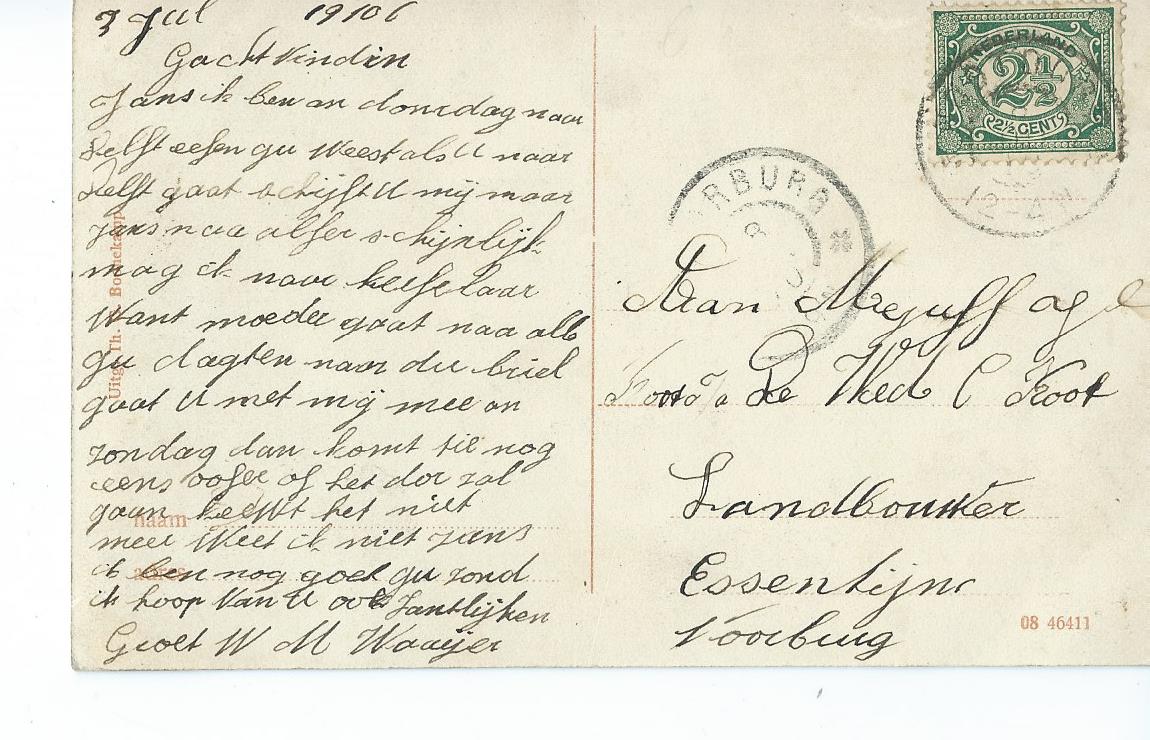 3 Jul 19106
Gacht Vindin
Jans ik ben an domdag naar
Delft eefen gu Weest als U naar
Delft gaat schijft U mij maar
Jans naa alfer schijnlijk
mag ik naar
Want moeder gaat naa alle
gu dagten naar du briel
gaat U met mij mee an
zondag dan komt sie nog
eens oofer of het dor zal
gaan heeWt het niet
meer Weet ik niet Jans
ik ben nog goet gu zond
ik hoop Van U ook Jantlijken
Groet W M Waaijer
Uitg. Th. Boonekamp
naam
adres
NEDERLAND
2½
2½ CENT
12-4N
RBURG
8
Aan Mejuff
De Wed C Koot
Landbouwer
Essentijn
Voorburg
08 46411